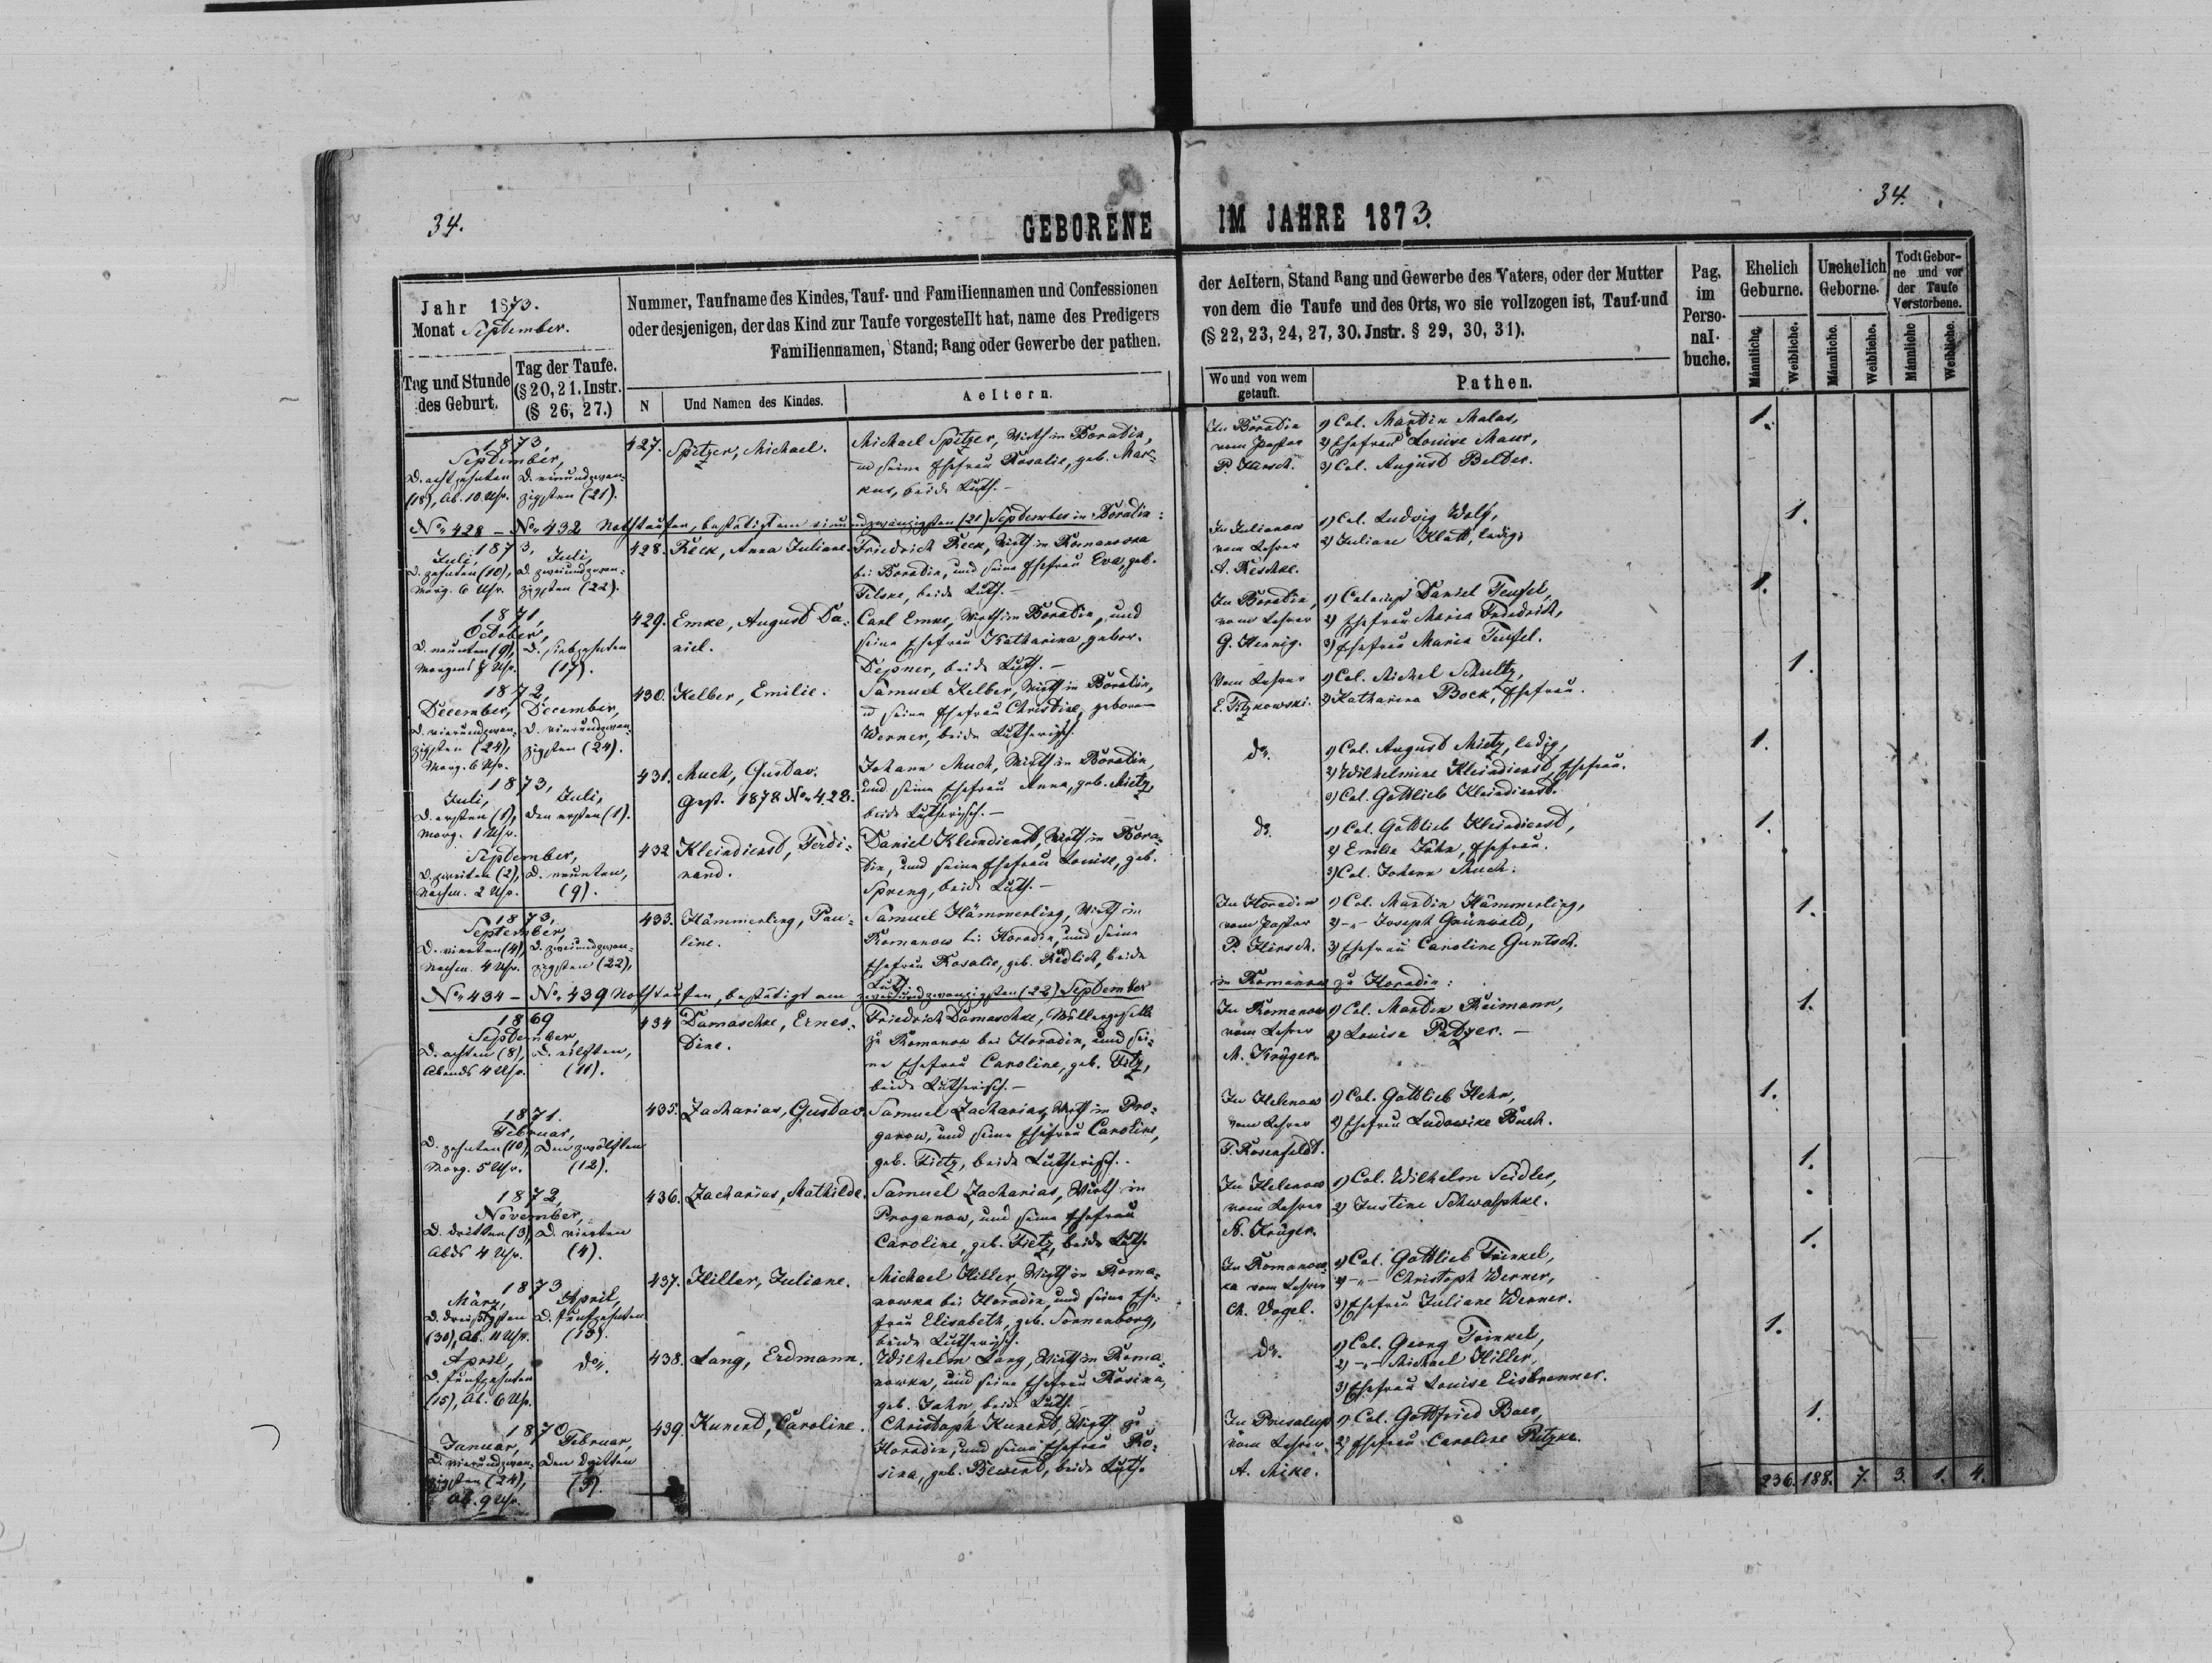 34.
GEBORENE
Jahr 1873.
Monat September.
Nummer, Taufname des Kindes, Tauf- und Familiennamen und Confessionen
oder desjenigen, der das Kind zur Taufe vorgestellt hat, name des Predigers
Familiennamen, Stand; Rang oder Gewerbe der pathen.
Tag und Stunde
des Geburt.
Tag der Taufe.
(§ 20, 21. Instr.
(§ 26, 27.)
N
Und Namen des Kindes.
Aeltern.
1873,
September,
D. achtzehnten
(18), Ab. 10 Uhr.
D. einundzwan-
zigsten (21).
427.
Spitzer, Michael.
Michael Spitzer, Wirth in Boratin,
u seine Ehefrau Rosalie, geb. Mar-
kus, beide Luth.-
No 428 - No 432 Nothtaufen, bestätigt am einundzwanzigsten (21) September in Boratin:
1873,
Juli,
D. zehnten (10),
Morg. 6 Uhr.
Juli,
D. zweiundzwan-
zigsten (22).
428.
Reck, Anna Juliane.
Friedrich Reck, Wirth in Romanowka
bei Boratin, und seine Ehefrau Eva, geb.
Felske, beide Luth.-
1871,
October,
D. neunten (9),
D. siebzehnten
(17).
429.
Emke, August Da-
niel.
Carl Emke, Wirth in Boratin, und
seine Ehefrau Katharina, gebor.
Depner, beide Luth.-
1872,
December,
D. vierundzwan-
zigsten (24),
Morg. 6 Uhr.
December,
D. vierundzwan-
zigsten (24).
430.
Kelber, Emilie.
Samuel Kelber, Wirth in Boratin,
u seine Ehefrau Christine, geborene
Werner, beide Lutherisch.
1873,
Juli,
D. ersten (1),
Morg. 1 Uhr.
Juli,
den ersten (1).
431.
Much, Gustav.
Gest. 1878 No 428.
Johann Much, Wirth in Boratin,
und seine Ehefrau Anna, geb. Mietz,
beide Lutherisch.-
September,
D. zweiten (2),
Nachm. 2 Uhr.
D. neunten,
(9).
432
Kleindienst, Ferdi-
nand.
Daniel Kleindienst, Wirth in Bora-
tin, und seine Ehefrau Louise, geb.
Spreng, beide Luth.-
1873,
September,
D. vierten (4),
Nachm. 4 Uhr.
D. zweiundzwan-
zigsten (22),
433.
Hämmerling, Pau-
line.
Samuel Hämmerling, Wirth in
Romanow bei Horodin, und seine
Ehefrau Rosalie, geb. Redlich, beide
Luth.
No 434 - No 439 Nothtaufen, bestätigt am zweiundzwanzigsten (22) September
1869
September,
D. achten (8),
Abends 4 Uhr.
D. eilften,
(11).
434
Damaschke, Ernes-
tine.
Friedrich Damaschke, Müllergesell
zu Romanow bei Horodin, und sei-
ne Ehefrau Caroline, geb. Fitz,
beide Lutherisch.-
1871.
Februar,
D. zehnten (10),
Morg. 5 Uhr.
Den zwölften
(12).
435.
Zacharias, Gustav.
Samuel Zacharias, Wirth in Pro-
ganow, und seine Ehefrau Caroline,
geb. Fietz, beide Lutherisch.-
1872,
November,
D. dritten (3),
Abds 4 Uhr.
D. vierten
(4).
436.
Zacharias, Mathilde.
Samuel Zacharias, Wirth in
Proganow, und seine Ehefrau
Caroline, geb. Fietz, beide Luth.
1873
März,
D. dreißigsten
(30), Ab. 11 Uhr.
April,
D. fünfzehnten
(15).
437.
Hiller, Juliane.
Michael Hiller, Wirth in Roma-
nowka bei Horodin, und seine Ehe-
frau Elisabeth, geb. Sonnenborg,
beide Lutherisch.
April,
D. fünfzehnten
(15), Ab. 6 Uhr.
do.
438.
Lang, Erdmann.
Wilhelm Lang, Wirth in Roma-
nowka, und seine Ehefrau Rosina,
geb. Jahn, beide Luth.
1870
Januar,
D. vierundzwan-
zigsten (24),
Ab. 9 Uhr.
Februar,
Den dritten
(3).
439.
Kunert, Caroline.
Christoph Kunert, Wirth zu
Horodin, und seine Ehefrau Ro-
sina, geb. Bewert, beide Luth.
34.
IM JAHRE 1873.
der Aeltern, Stand Rang und Gewerbe des Vaters, oder der Mutter
von dem die Taufe und des Orts, wo sie vollzogen ist, Tauf-und
(§ 22, 23, 24, 27, 30. Jnstr. § 29, 30, 31).
Wo und von wem
getauft.
Pathen.
Pag.
im
Perso-
nal-
buche.
Ehelich
Geburne.
Unehelich
Geborne.
Todt Gebor-
ne und vor
der Taufe
Verstorbene.
Männliche.
Weibliche.
Männliche.
Weibliche.
Männliche
Weibliche.
In Boratin
vom Pastor
P. Hirsch.
1) Col. Martin Malas,
2) Ehefrau Louise Maur,
3) Col. August Belter.
1.
In Julianow
vom Lehrer
A. Reschke.
1) Col. Ludwig Wolf,
2) Juliane Klatt, ledig.
1.
In Boratin,
vom Lehrer
G. Hennig.
1) Colonist Daniel Teufel,
2) Ehefrau Maria Friedrich,
3) Ehefrau Maria Teufel.
1.
Vom Lehrer
E. Fitzkowski.
1) Col. Michel Schultz,
2) Katharina Bock, Ehefrau.
1.
do.
1) Col. August Mietz, ledig,
2) Wilhelmine Kleindienst, Ehefrau.
3) Col. Gottlieb Kleindienst.
1.
do.
1) Col. Gottlieb Kleindienst,
2) Emilie Jahn, Ehefrau.
3) Col. Johann Much.
1.
In Horodin
vom Pastor
P. Hirsch.
1) Col. Martin Hämmerling,
2) -„- Joseph Grünwald,
3) Ehefrau Caroline Guntsch.
1.
in Romanow zu Horodin:
In Romanow
vom Lehrer
M. Krüger.
1) Col. Martin Reimann,
2) Louise Patzer.-
1.
In Helenow
vom Lehrer
F. Rosenfeldt.
1) Col. Gottlieb Hehn,
2) Ehefrau Ludowike Buch.
1.
In Helenow
vom Lehrer
A. Krüger.
1) Col. Wilhelm Seidler,
2) Justine Schwaschke.
1.
In Romanow-
ka vom Lehrer
Ch. Vogel.
1) Col. Gottlieb Trinkel,
2) -„- Christoph Werner,
3) Ehefrau Juliane Werner.
1.
do.
1) Col. Georg Trinkel,
2) -„- Michael Hiller,
3) Ehefrau Louise Eisbrenner.
1.
In Presalup
vom Lehrer
A. Mike.
1) Col. Gottfried Baer,
2) Ehefrau Caroline Ritzke.
1.
236. 188. 7. 3. 1. 4.